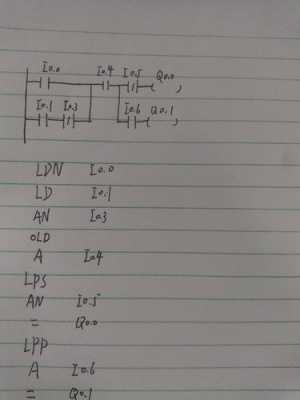 I0.0 I0.4 I0.5 Q0.0
I0.1 I0.3 I0.6 Q0.1
LDN I0.0
LD I0.1
AN I0.3
OLD
A I0.4
LPS
AN I0.5
= Q0.0
LPP
A I0.6
= Q0.1